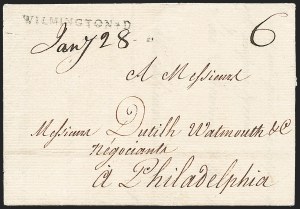 WILMINGTON*D
Jany 28 - -
6
A Messieurs
Messieurs Dutilh Walmouth & C
Négociants
à Philadelphia